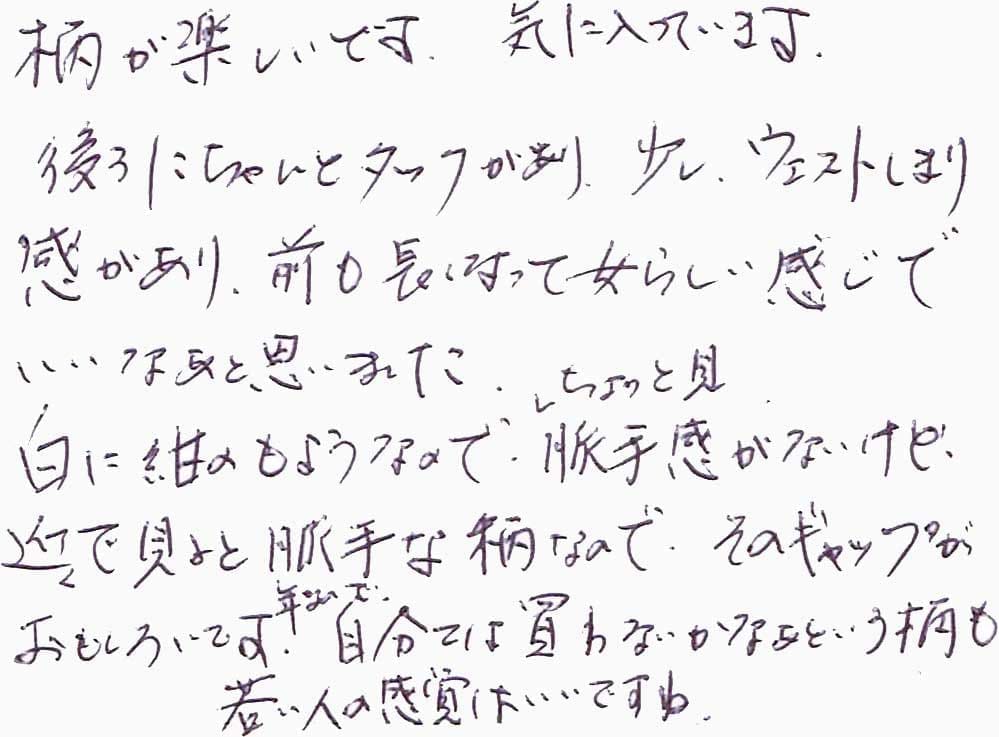 柄が楽しいです. 気に入っています.
後ろにちゃんとタックがあり、少し、ウェストしまり
感があり、前も長くなって女らしい感じで
いいなあと思いました. ちょっと見
白に紺のもようなので、脈手感がないけど、
近くで見ると脈手な柄なので、そのギャップが
おもしろいです. 年なので、自分では買わないかなあという柄も
若い人の感覚はいいですね.